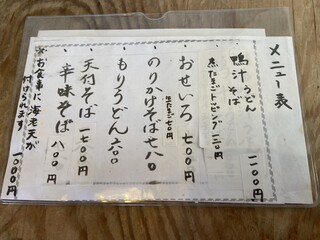 メニュー表
鴨汁うどん そば 一一〇〇円
煮たまごトッピング一二〇円
おせいろ 七〇〇円
生たまご七〇円
のりかけそば七八〇
もりうどん六〇〇
天付そば 一七〇〇円
辛味そば 八〇〇円
※お食事に海老天が付けられます 一〇〇〇円